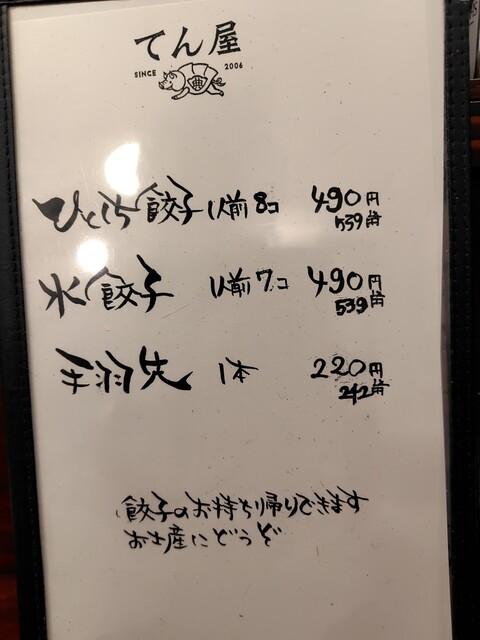 てん屋
SINCE 2006
ひとくち餃子 1人前 8コ 490円
539円
水餃子 1人前 7コ 490円
539円
手羽先 1本 220円
242円
餃子のお持ち帰りできます
お土産にどうぞ